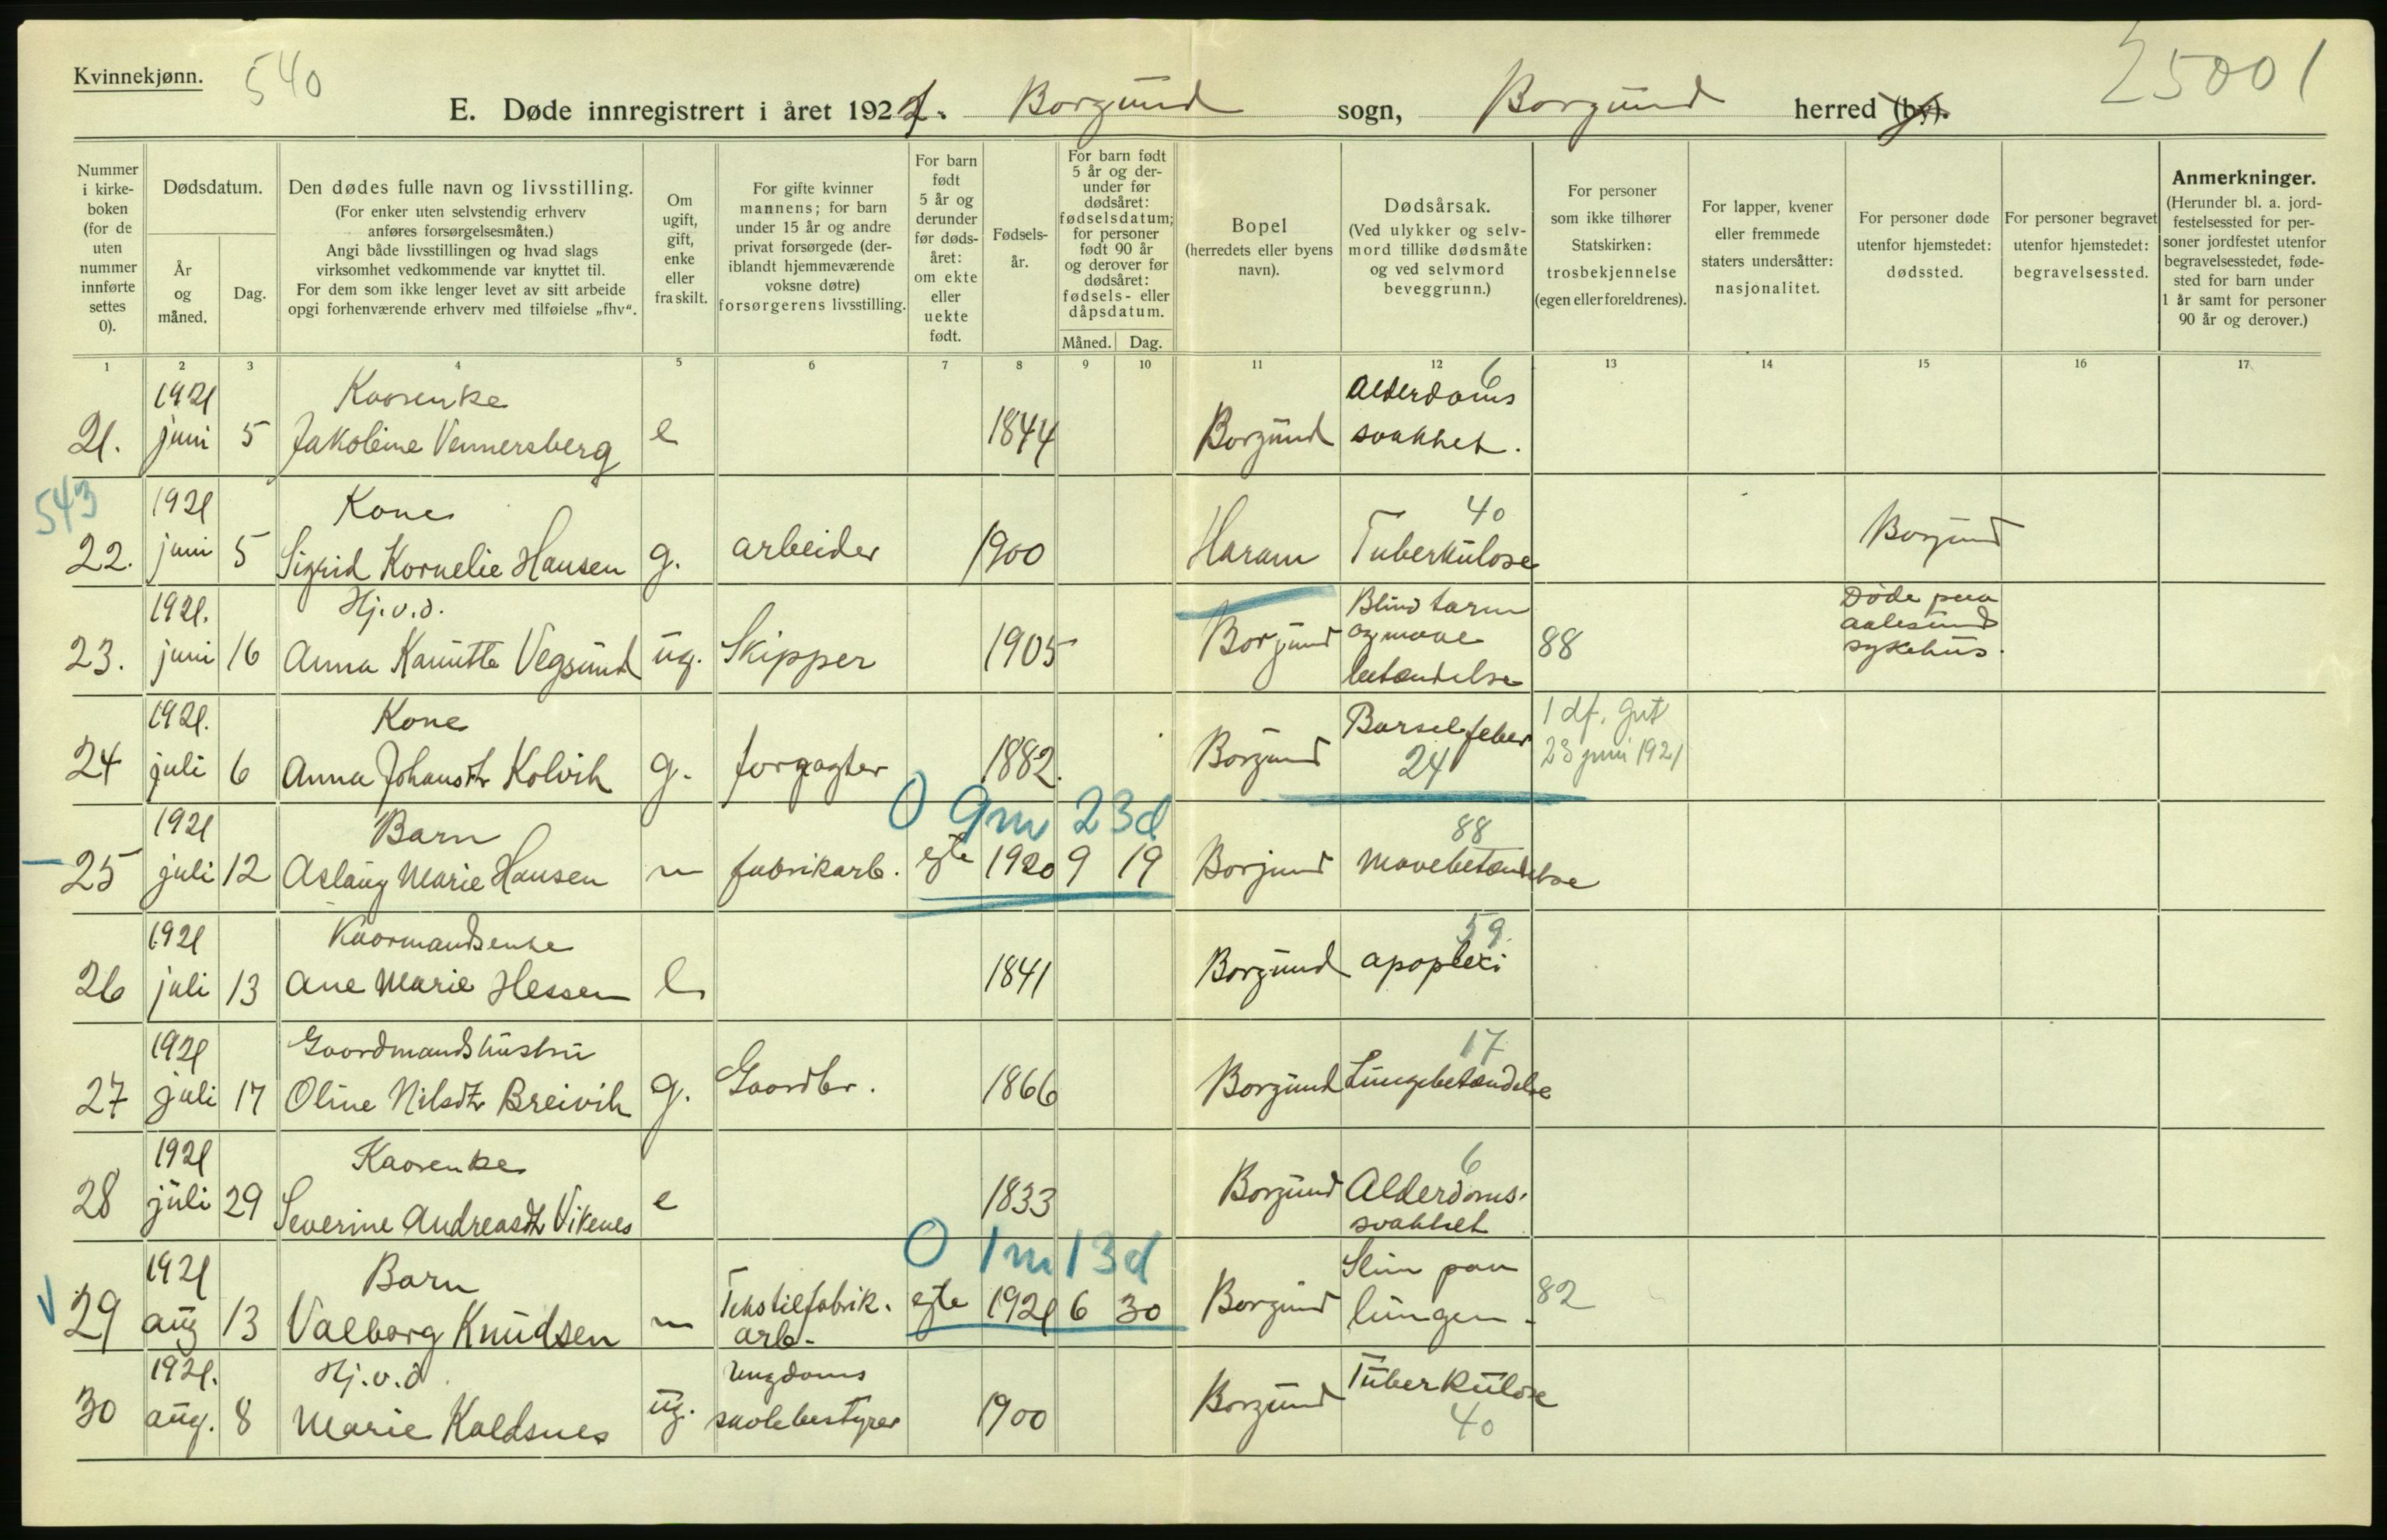 Kvinnekjønn.
540
25001
E. Døde innregistrert i året 1921. Borgund sogn, Borgund herred (by).
Nummer i kirke-boken (for de uten nummer innførte settes 0).
Dødsdatum.
År og måned.
Dag.
Den dødes fulle navn og livsstilling.
(For enker uten selvstendig erhverv anføres forsørgelsesmåten.)
Angi både livsstillingen og hvad slags virksomhet vedkommende var knyttet til.
For dem som ikke lenger levet av sitt arbeide opgi forhenværende erhverv med tilføielse „fhv“.
Om ugift, gift, enke eller fraskilt.
For gifte kvinner mannens; for barn under 15 år og andre privat forsørgede (deriblandt hjemmeværende voksne døtre) forsørgerens livsstilling.
For barn født 5 år og derunder før dødsåret: om ekte eller uekte født.
Fødselsår.
For barn født 5 år og derunder før dødsåret: fødselsdatum; for personer født 90 år og derover før dødsåret: fødsels- eller dåpsdatum.
Måned. Dag.
Bopel (herredets eller byens navn).
Dødsårsak.
(Ved ulykker og selvmord tillike dødsmåte og ved selvmord beveggrunn.)
For personer som ikke tilhører Statskirken: trosbekjennelse (egen eller foreldrenes).
For lapper, kvener eller fremmede staters undersåtter: nasjonalitet.
For personer døde utenfor hjemstedet: dødssted.
For personer begravet utenfor hjemstedet: begravelsessted.
Anmerkninger.
(Herunder bl. a. jordfestelsessted for personer jordfestet utenfor begravelsesstedet, fødested for barn under 1 år samt for personer 90 år og derover.)
1 2 3 4 5 6 7 8 9 10 11 12 13 14 15 16 17
1921 Kaarenke Alderdoms 6
21. juni 5 Jakoline Vennersberg e 1844 Borgund svakhet.
543 1921 Kone 40
22. juni 5 Sigrid Kornelie Hansen g. arbeider 1900 Haram Tuberkulose Borgund
1921. Hj.v.d. Blindtarm Døde paa
23. juni 16 Anna Kanutte Vegsund ug. Skipper 1905 Borgund og mave 88 aalesund
betændelse sykehus.
1921. Kone Barselfeber 1 df. gut
24 juli 6 Anna Johansdtr Kolvik g. forpagter 1882. Borgund 24 23 juni 1921
0 9m 23d
1921 Barn 88
25 juli 12 Aslaug Marie Hansen fabrikarb. egte 1920 9 19 Borgund Mavebetændelse
1921 Kaarmandsenke 59
26 juli 13 Ane Marie Hessen e 1841 Borgund apoplexi
1921 Gaardmandshustru 17
27 juli 17 Oline Nilsdtr Breivik g. Gaardbr. 1866 Borgund Lungebetændelse
1921 Kaarenke 6
28 juli 29 Severine Andreasdtr Vikenes e 1833 Borgund Alderdoms-
svakhet
0 1m 13d
1921 Barn Slim paa
29 aug 13 Valborg Knudsen Tekstilfabrik. egte 1921 6 30 Borgund lungen. 82
arb.
1921. Hj.v.d. Ungdoms Tuberkulose
30 aug. 8 Marie Kaldsnes ug. skolebestyrer 1900 Borgund 40